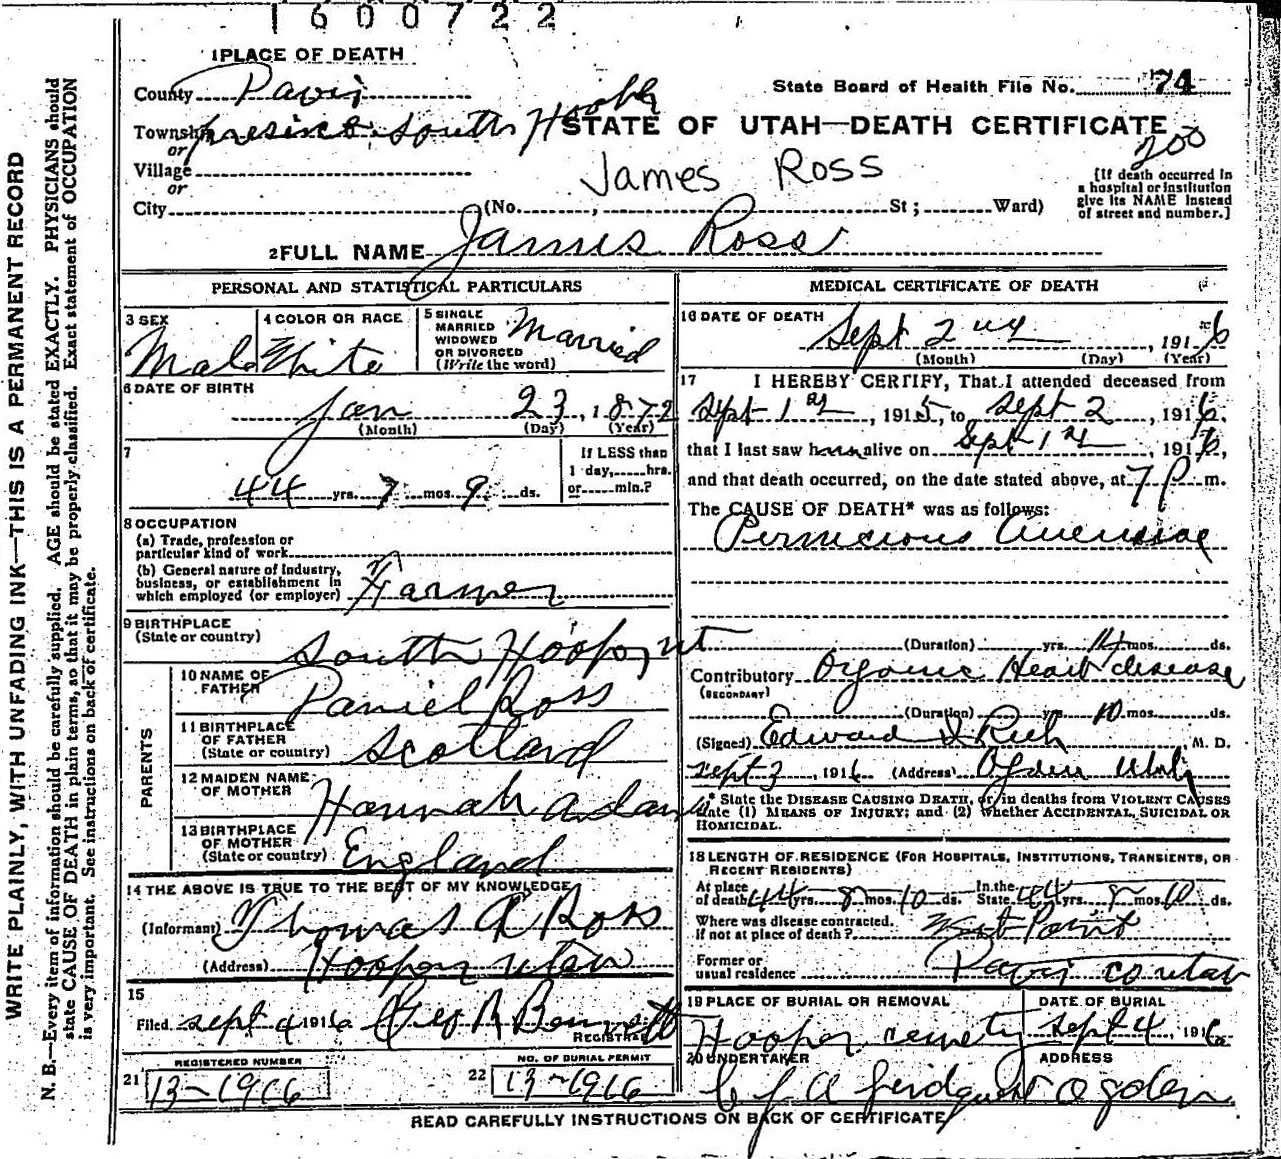 1600722
1 PLACE OF DEATH
County Davis
State Board of Health File No. 74
Township presinct South Hooper
STATE OF UTAH—DEATH CERTIFICATE
or
200
Village
James Ross
or
[If death occurred in
a hospital or institution
give its NAME instead
of street and number.]
City (No. , St ; Ward)
2 FULL NAME James Ross
PERSONAL AND STATISTICAL PARTICULARS
3 SEX Male
4 COLOR OR RACE White
5 SINGLE
MARRIED
WIDOWED
OR DIVORCED
(Write the word) Married
6 DATE OF BIRTH
Jan 23, 1872
(Month) (Day) (Year)
7
44 yrs. 7 mos. 9 ds.
If LESS than
1 day, hrs.
or min.?
8 OCCUPATION
(a) Trade, profession or
particular kind of work
(b) General nature of industry,
business, or establishment in
which employed (or employer) Farmer
9 BIRTHPLACE
(State or country) South Hooper, ut
PARENTS
10 NAME OF
FATHER Daniel Ross
11 BIRTHPLACE
OF FATHER
(State or country) Scotland
12 MAIDEN NAME
OF MOTHER Hannah Adams
13 BIRTHPLACE
OF MOTHER
(State or country) England
14 THE ABOVE IS TRUE TO THE BEST OF MY KNOWLEDGE
(Informant) Thomas A Ross
(Address) Hooper utah
15
Filed Sept 4 1916 Geo R Bennett
REGISTRAR
REGISTERED NUMBER
21 13-1916
NO. OF BURIAL PERMIT
22 13-1916
MEDICAL CERTIFICATE OF DEATH
16 DATE OF DEATH
Sept 2, 1916
(Month) (Day) (Year)
17 I HEREBY CERTIFY, That I attended deceased from
Sept 1st, 1915, to Sept 2, 1916,
that I last saw him alive on Sept 1st, 1916,
and that death occurred, on the date stated above, at 7 P m.
The CAUSE OF DEATH* was as follows:
Pernicious Anemiae
(Duration) yrs. 14 mos. ds.
Contributory Organic Heart disease
(SECONDARY)
(Duration) yrs. 10 mos. ds.
(Signed) Edward I Rich M. D.
Sept 3, 1916 (Address) Ogden Utah
* State the DISEASE CAUSING DEATH, or, in deaths from VIOLENT CAUSES
state (1) MEANS OF INJURY; and (2) whether ACCIDENTAL, SUICIDAL OR
HOMICIDAL.
18 LENGTH OF RESIDENCE (FOR HOSPITALS, INSTITUTIONS, TRANSIENTS, OR
RECENT RESIDENTS)
At place
of death 44 yrs. 8 mos. 10 ds.
In the
State 44 yrs. 8 mos. 10 ds.
Where was disease contracted,
If not at place of death? West Point
Former or
usual residence Davis co utah
19 PLACE OF BURIAL OR REMOVAL
Hooper cemety
DATE OF BURIAL
Sept 4, 1916
20 UNDERTAKER
ADDRESS
Ogden
READ CAREFULLY INSTRUCTIONS ON BACK OF CERTIFICATE
WRITE PLAINLY, WITH UNFADING INK—THIS IS A PERMANENT RECORD
N. B.—Every item of information should be carefully supplied. AGE should be stated EXACTLY. PHYSICIANS should
state CAUSE OF DEATH in plain terms, so that it may be properly classified. Exact statement of OCCUPATION
is very important. See instructions on back of certificate.